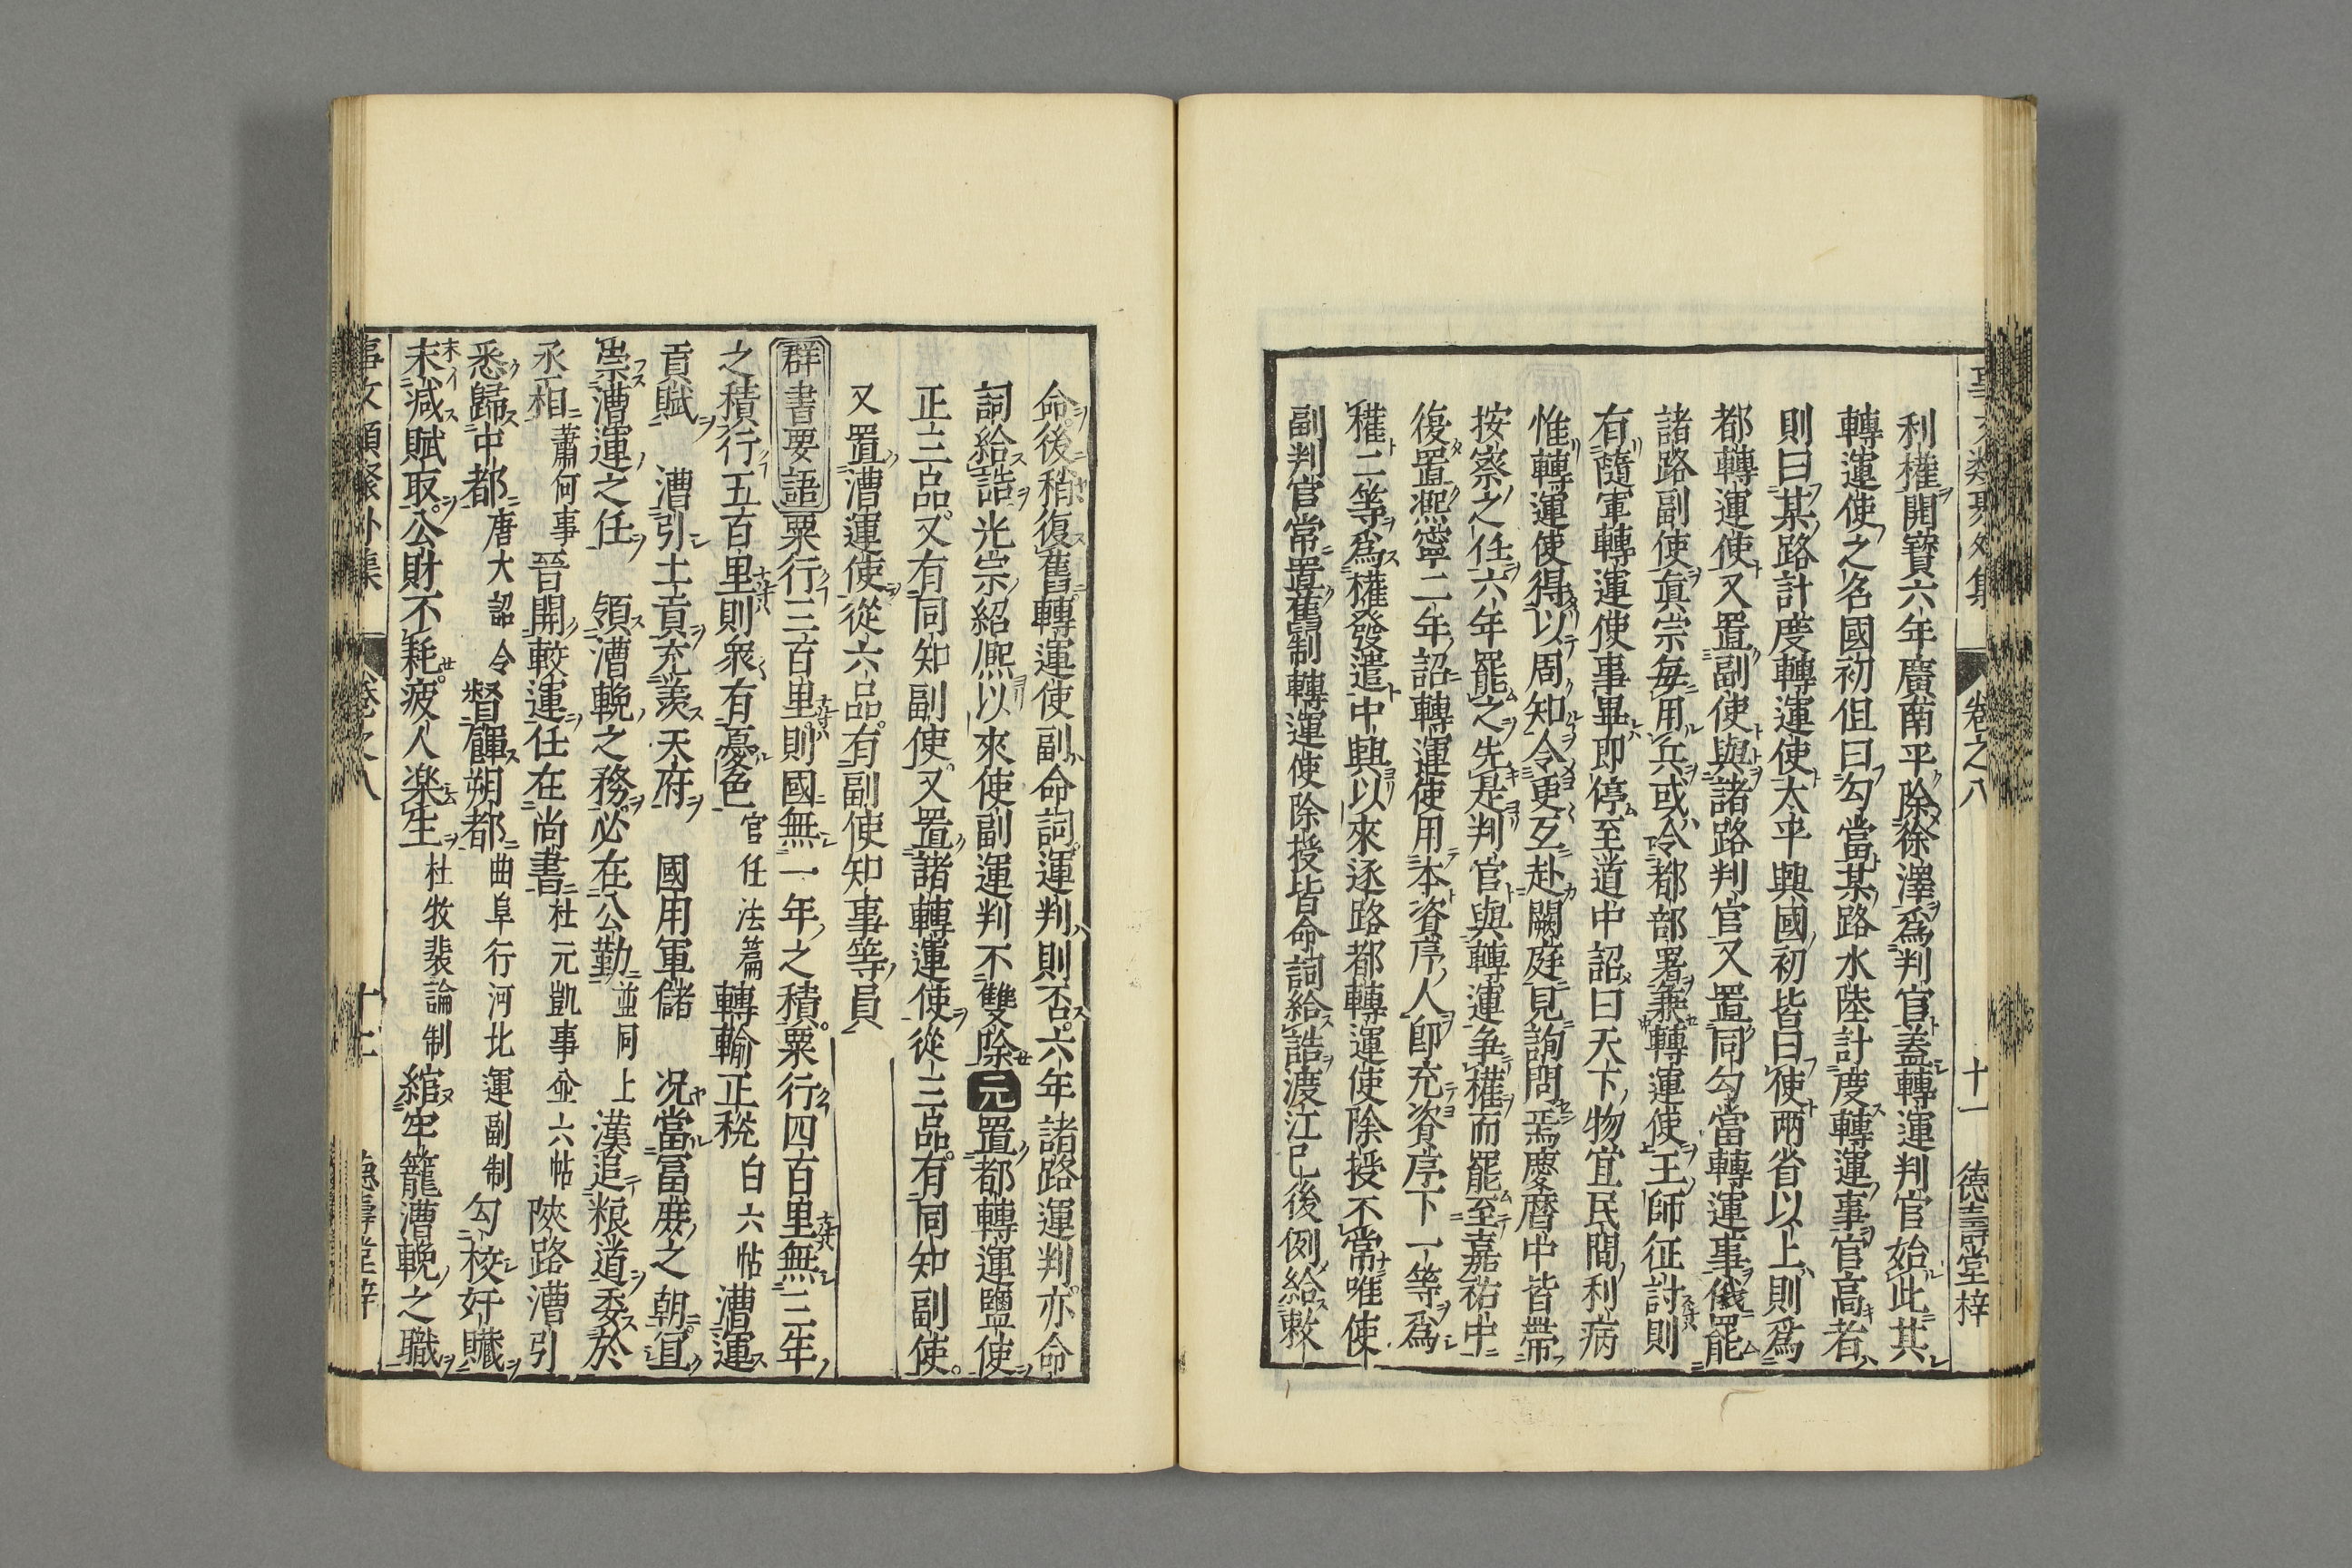 卷之八 十一 德壽堂梓
利權開寶六年廣南平除徐澤爲判官蓋轉運判官始此其
轉運使之名國初但曰勾當某路水陸計度轉運事官高者
則曰某路計度轉運使太平興國初皆曰使兩省以上則爲
都轉運使又置副使與諸路判官又置同勾當轉運事俄罷
諸路副使眞宗毎用兵或令都部署兼轉運使王師征討則
有隨軍轉運使事畢即停至道中詔曰天下物宜民間利病
惟轉運使得以周知令更互赴闕庭見詢問焉慶曆中皆帶
按察之任六年罷之先是判官與轉運争權而罷至嘉祐中
復置熈寧二年詔轉運使用本資序人即充資序下一等爲
權二等爲權發遣中興以來逐路都轉運使除授不常唯使
副判官常置舊制轉運使除授皆命詞給誥渡江已後例給敕
命後稍復舊轉運使副命詞運判則否六年諸路運判亦命
詞給誥光宗紹熈以來使副運判不雙除元置都轉運鹽使
正三品又有同知副使又置諸轉運使從三品有同知副使
又置漕運使從六品有副使知事等員
群書要語粟行三百里則國無一年之積粟行四百里無二年
之積行五百里則衆有憂色官任法篇轉輸正稅白六帖漕運
貢賦 漕引土貢充羨天府 國用軍儲 况當冨庶之朝宜
崇漕運之任 領漕輓之務必在公勤並同上漢追粮道委於
丞相蕭何事晉開較運任在尚書杜元凱事仝六帖陝路漕引
悉歸中都唐大詔令督餫朔都曲阜行河北運副制勾校奸贜
末減賦取公財不耗疲人楽生杜牧裴論制綰牢籠漕輓之職
事文類聚外集 卷之八 十一 德壽堂梓